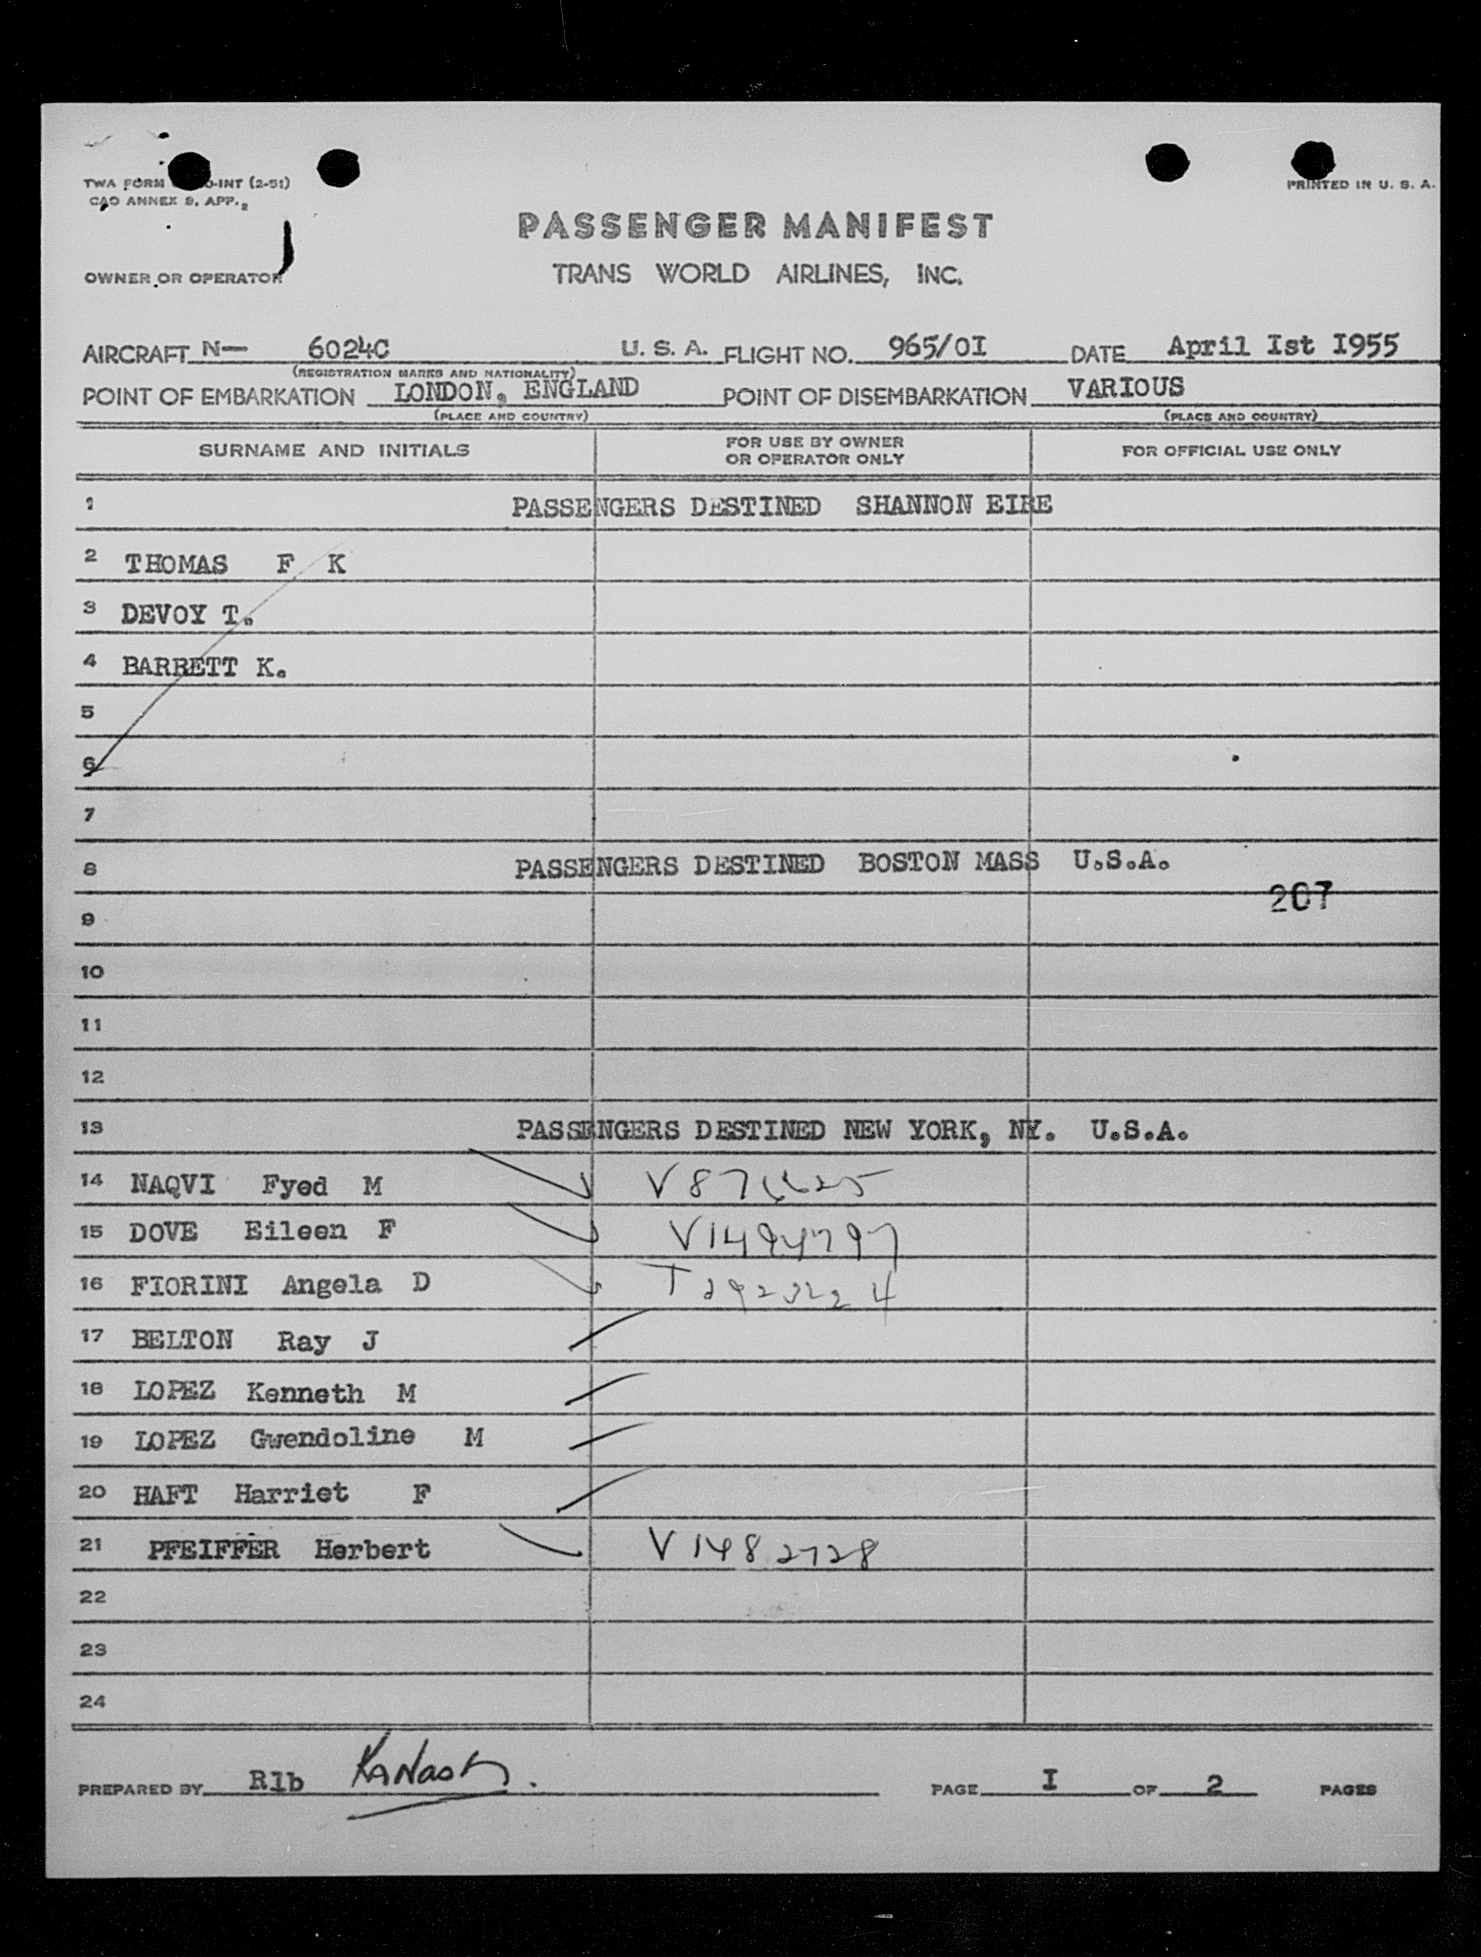 TWA FORM -INT (2-51) PRINTED IN U. S. A.
CAO ANNEX 9, APP. 2
PASSENGER MANIFEST
OWNER OR OPERATOR TRANS WORLD AIRLINES, INC.
AIRCRAFT N— 6024C U. S. A. FLIGHT NO. 965/0I DATE April Ist I955
(REGISTRATION MARKS AND NATIONALITY)
POINT OF EMBARKATION LONDON, ENGLAND POINT OF DISEMBARKATION VARIOUS
(PLACE AND COUNTRY) (PLACE AND COUNTRY)
SURNAME AND INITIALS FOR USE BY OWNER OR OPERATOR ONLY FOR OFFICIAL USE ONLY
1 PASSENGERS DESTINED SHANNON EIRE
2 THOMAS F K
3 DEVOY T.
4 BARRETT K.
5
6
7
8 PASSENGERS DESTINED BOSTON MASS U.S.A.
207
9
10
11
12
13 PASSENGERS DESTINED NEW YORK, NY. U.S.A.
14 NAQVI Fyed M
15 DOVE Eileen F V1494797
16 FIORINI Angela D
17 BELTON Ray J
18 LOPEZ Kenneth M
19 LOPEZ Gwendoline M
20 HAFT Harriet F
21 PFEIFFER Herbert V1482728
22
23
24
PREPARED BY Rlb PAGE I OF 2 PAGES